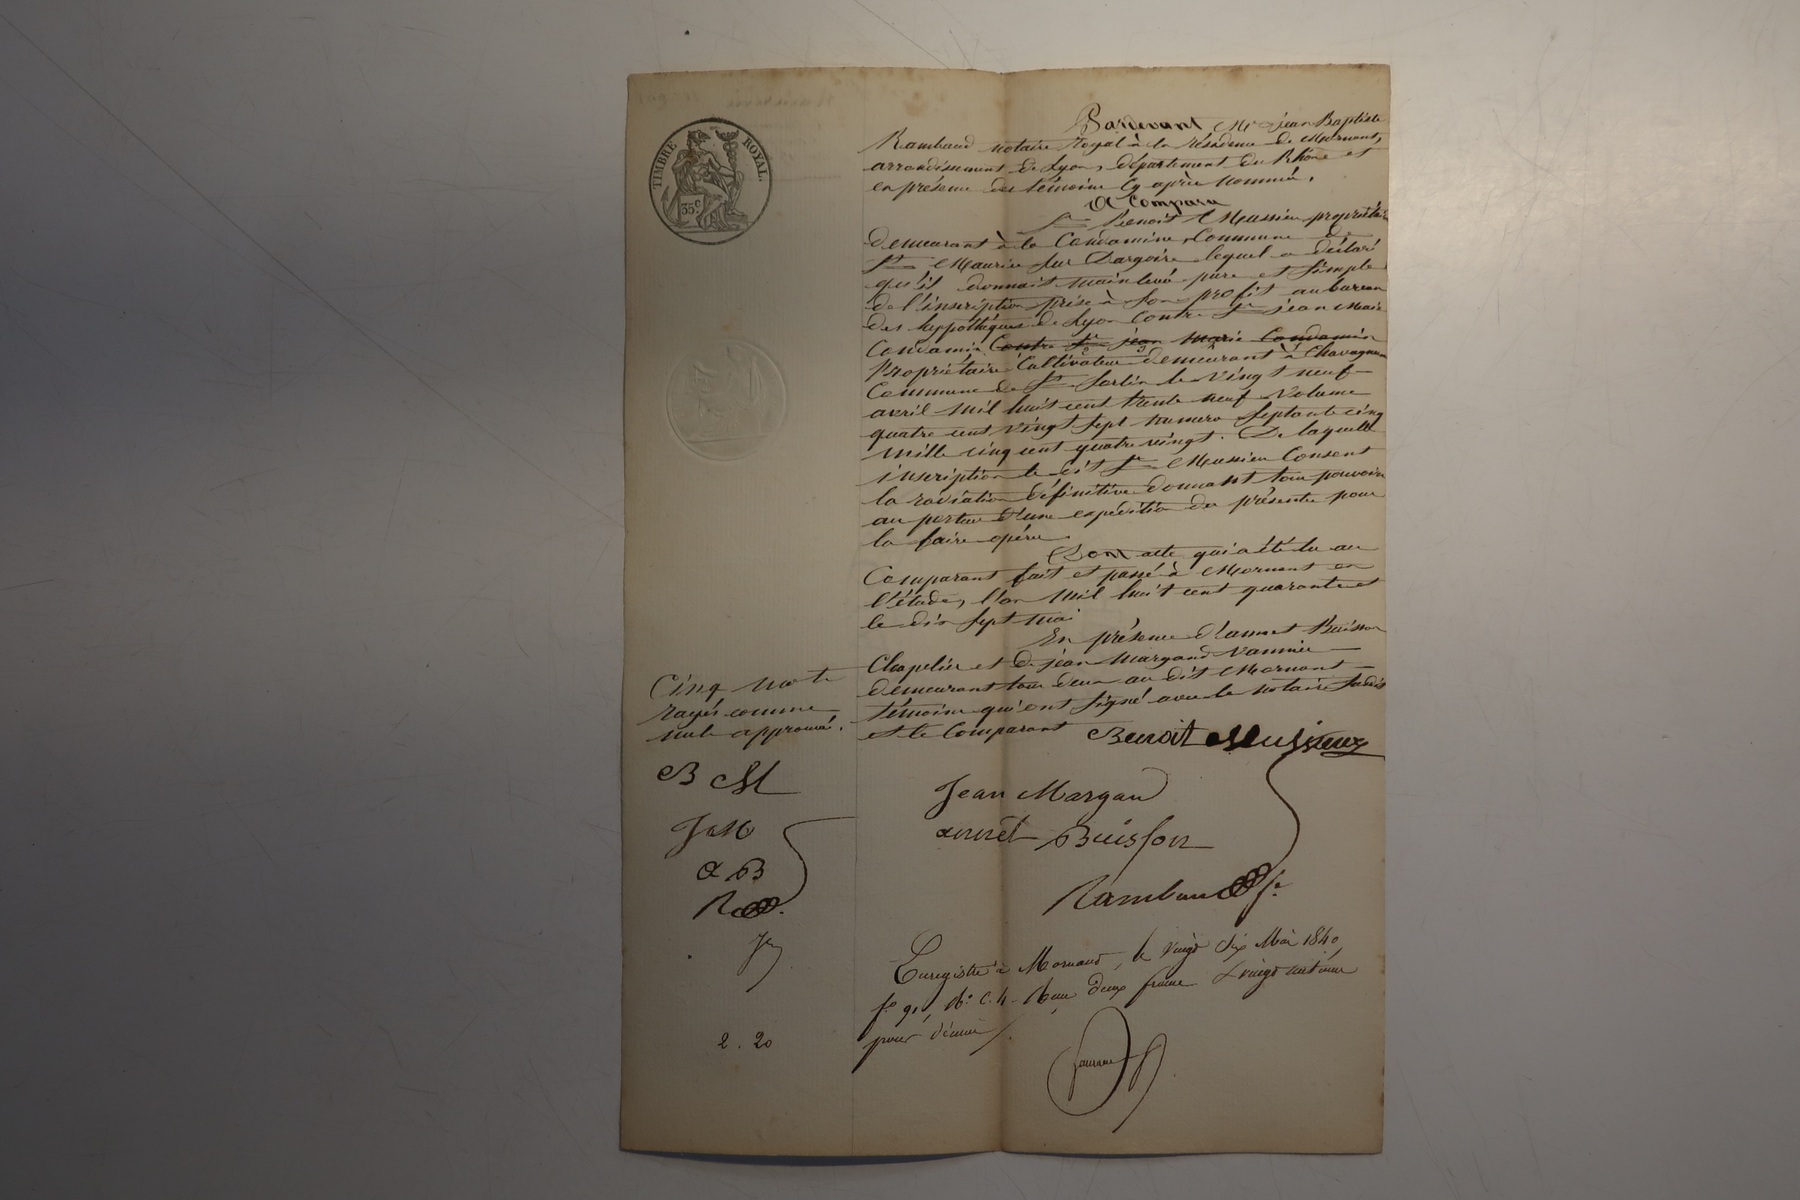 TIMBRE ROYAL.
35 c
Pardevant Me jean Baptiste
Rambaud notaire Royal à la résidence de Mornant,
arrondissement de Lyon, département du Rhône et
en présence des témoins cy après nommés.
A Comparu
Sr Benoit Mussieu propriétaire
demeurant à la Condamine, Commune de
St Maurice sur Dargoire lequel a déclaré
qu'il donnait mainlevé pure et simple
de l'inscription prise à son profit au bureau
des hypothèques de Lyon Contre Sr jean Marie
Condamin Contre Sr jean marie Condamin
Propriétaire Cultivateur demeurant à Chavagneux
Commune de St Sorlin le vingt neuf
avril mil huit cent trente neuf volume
quatre cent vingt sept numero septante cinq
mille cinq cent quatre vingt. De laquelle
inscription le dit Sr Mussieu Consent
la radiation définitive donnant tout pouvoir
au porteur d'une expédition des présentes pour
la faire opérer
Dont acte qui a été lu au
Comparant fait et passé à Mornant en
l'étude, l'an mil huit cent quarante et
le dix sept mai
En présence d'annet Buisson
Chapelier et de jean Margand vannier
demeurant tous deux au dit Mornant
témoins qu'ont signé avec le notaire susdit
et le Comparant
Benoit Mussieux
Cinq mots
rayés comme
nuls approuvés.
B M
J M
A B
R
Jean Margan
annet Buisson
Rambaud
Enregistré à Mornant, le vingt six Mai 1840,
fo 91, Ro C. 4. Reçu deux francs & vingt centimes
pour décime
2. 20